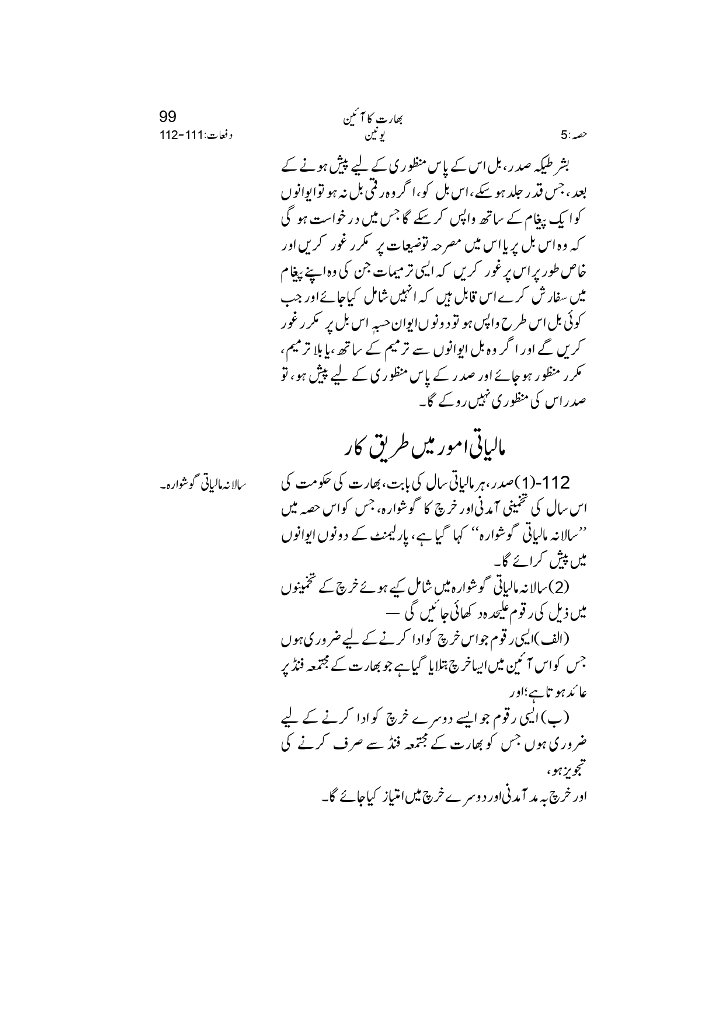 99
بھارت کا آئین
حصہ :5
یونین
دفعات:111-112
بشر طیکہ صدر، بل اس کے پاس منظوری کے لیے پیش ہونے کے
بعد، جس قدر جلد ہو سکے، اس بل کو، اگر وہ رقمی بل نہ ہو تو ایوانوں
کو ایک پیغام کے ساتھ واپس کر سکے گا جس میں درخواست ہو گی
کہ وہ اس بل پر یا اس میں مصرحہ توضیعات پر مکرر غور کریں اور
خاص طور پر اس پر غور کریں کہ ایسی ترمیمات جن کی وہ اپنے پیغام
میں سفارش کرے اس قابل ہیں کہ انہیں شامل کیا جائے اور جب
کوئی بل اس طرح واپس ہو تو دونوں ایوان حسبہٖ اس بل پر مکرر غور
کریں گے اور اگر وہ بل ایوانوں سے ترمیم کے ساتھ ،یا بلا ترمیم،
مکرر منظور ہو جائے اور صدر کے پاس منظوری کے لیے پیش ہو، تو
صدر اس کی منظوری نہیں روکے گا۔
مالیاتی امور میں طریق کار
سالانہ مالیاتی گوشوارہ۔
112-(1)صدر، ہر مالیاتی سال کی بابت، بھارت کی حکومت کی
اس سال کی تخمینی آمدنی اور خرچ کا گوشوارہ، جس کو اس حصہ میں
‘‘سالانہ مالیاتی گوشوارہ’’ کہا گیا ہے، پارلیمنٹ کے دونوں ایوانوں
میں پیش کرائے گا۔
(2)سالانہ مالیاتی گوشوارہ میں شامل کیے ہوئے خرچ کے تخمینوں
میں ذیل کی رقوم علیحدہ دکھائی جائیں گی —
(الف)ایسی رقوم جو اس خرچ کو ادا کرنے کے لیے ضروری ہوں
جس کو اس آئین میں ایسا خرچ بتلایا گیا ہے جو بھارت کے مجتمعہ فنڈ پر
عائد ہوتا ہے؛ اور
(ب)ایسی رقوم جو ایسے دوسرے خرچ کو ادا کرنے کے لیے
ضروری ہوں جس کو بھارت کے مجتمعہ فنڈ سے صرف کرنے کی
تجویز ہو،
اور خرچ بہ مد آمدنی اور دوسرے خرچ میں امتیاز کیا جائے گا۔